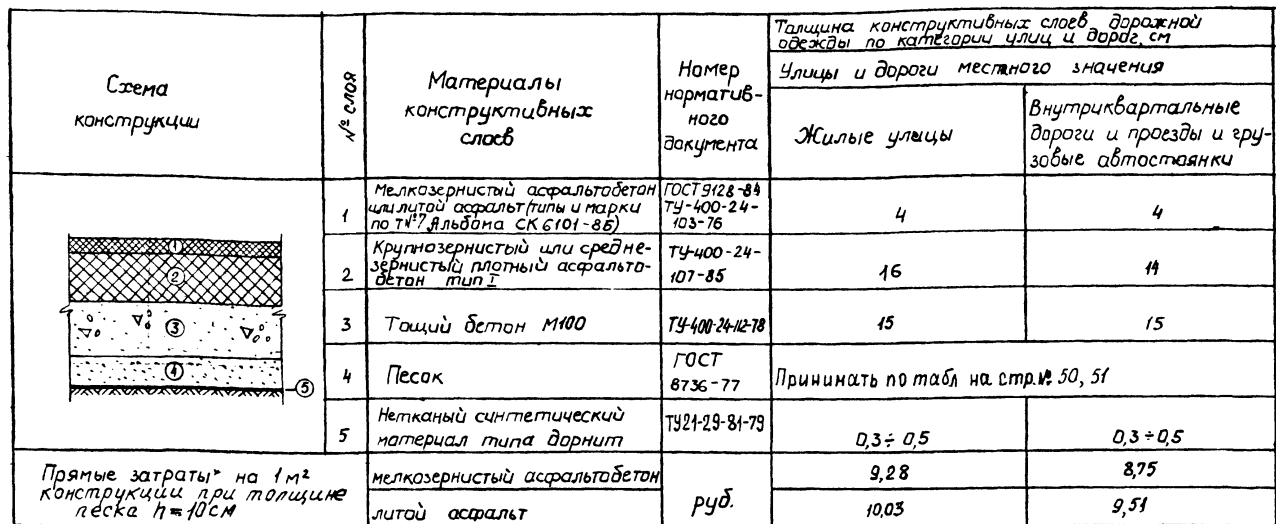 Схема
конструкции
№ слоя
Материалы
конструктивных
слоев
Номер
норматив-
ного
документа
Толщина конструктивных слоев дорожной
одежды по категории улиц и дорог, см
Улицы и дороги местного значения
Жилые улицы
Внутриквартальные
дороги и проезды и гру-
зовые автостоянки
1
2
3
4
5
1
Мелкозернистый асфальтобетон
или литой асфальт (типы и марки
по т.№7 Альбома СК 6101-86)
ГОСТ 9128-84
ТУ-400-24-
103-76
4
4
2
Крупнозернистый или средне-
зернистый плотный асфальто-
бетон тип I
ТУ-400-24-
107-85
16
14
3
Тощий бетон М100
ТУ-400-24-112-78
15
15
4
Песок
ГОСТ
8736-77
Принимать по табл на стр.№ 50, 51
5
Нетканый синтетический
материал типа дорнит
ТУ21-29-81-79
0,3÷0,5
0,3÷0,5
Прямые затраты* на 1 м²
конструкции при толщине
песка h=10см
мелкозернистый асфальтобетон
литой асфальт
руб.
9,28
8,75
10,03
9,51